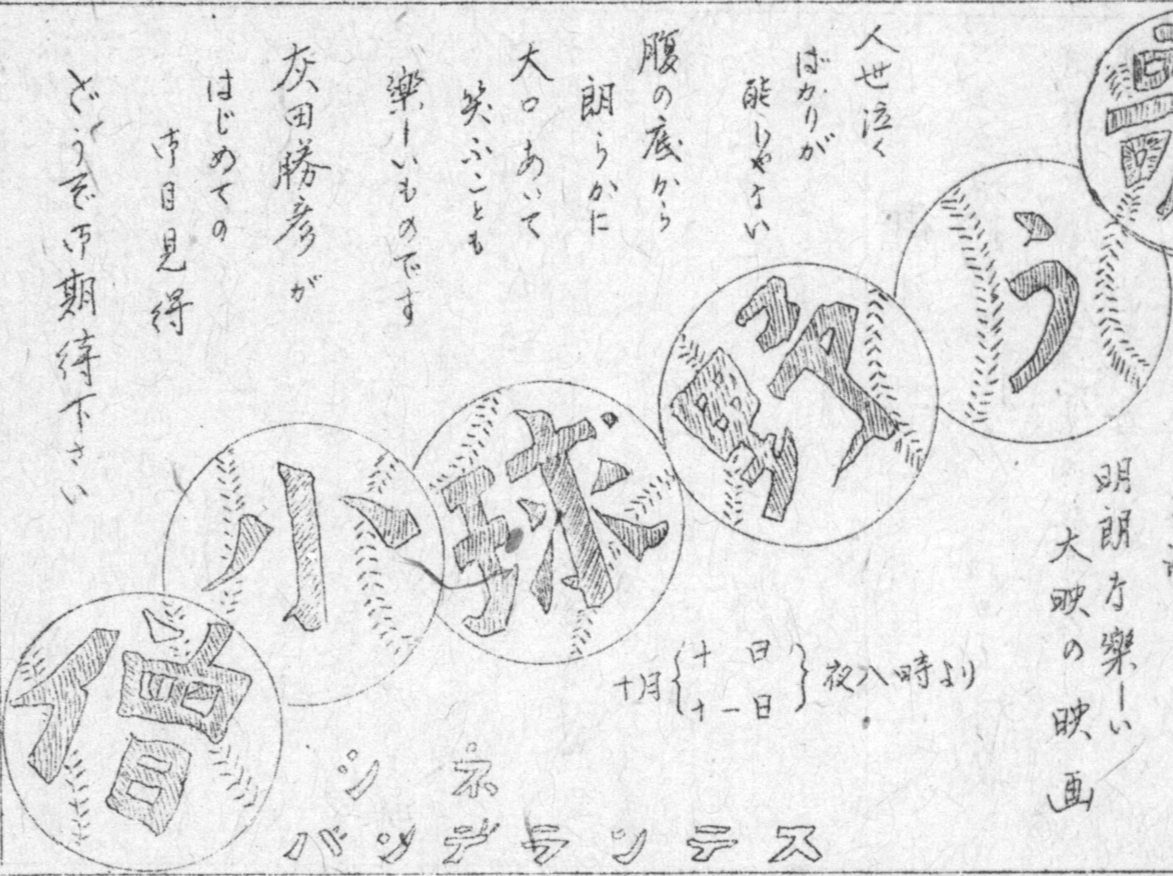 う野球小僧
明朗な樂しい
大映の映画
人世泣く
ばかりが
能じやない
腹の底から
朗らかに
大口あいて
笑ふことも
樂しいものです
灰田勝彦が
はじめての
御目見得
どうぞ御期待下さい
十月{十日 十一日}夜八時より
シネ
バツデランテス